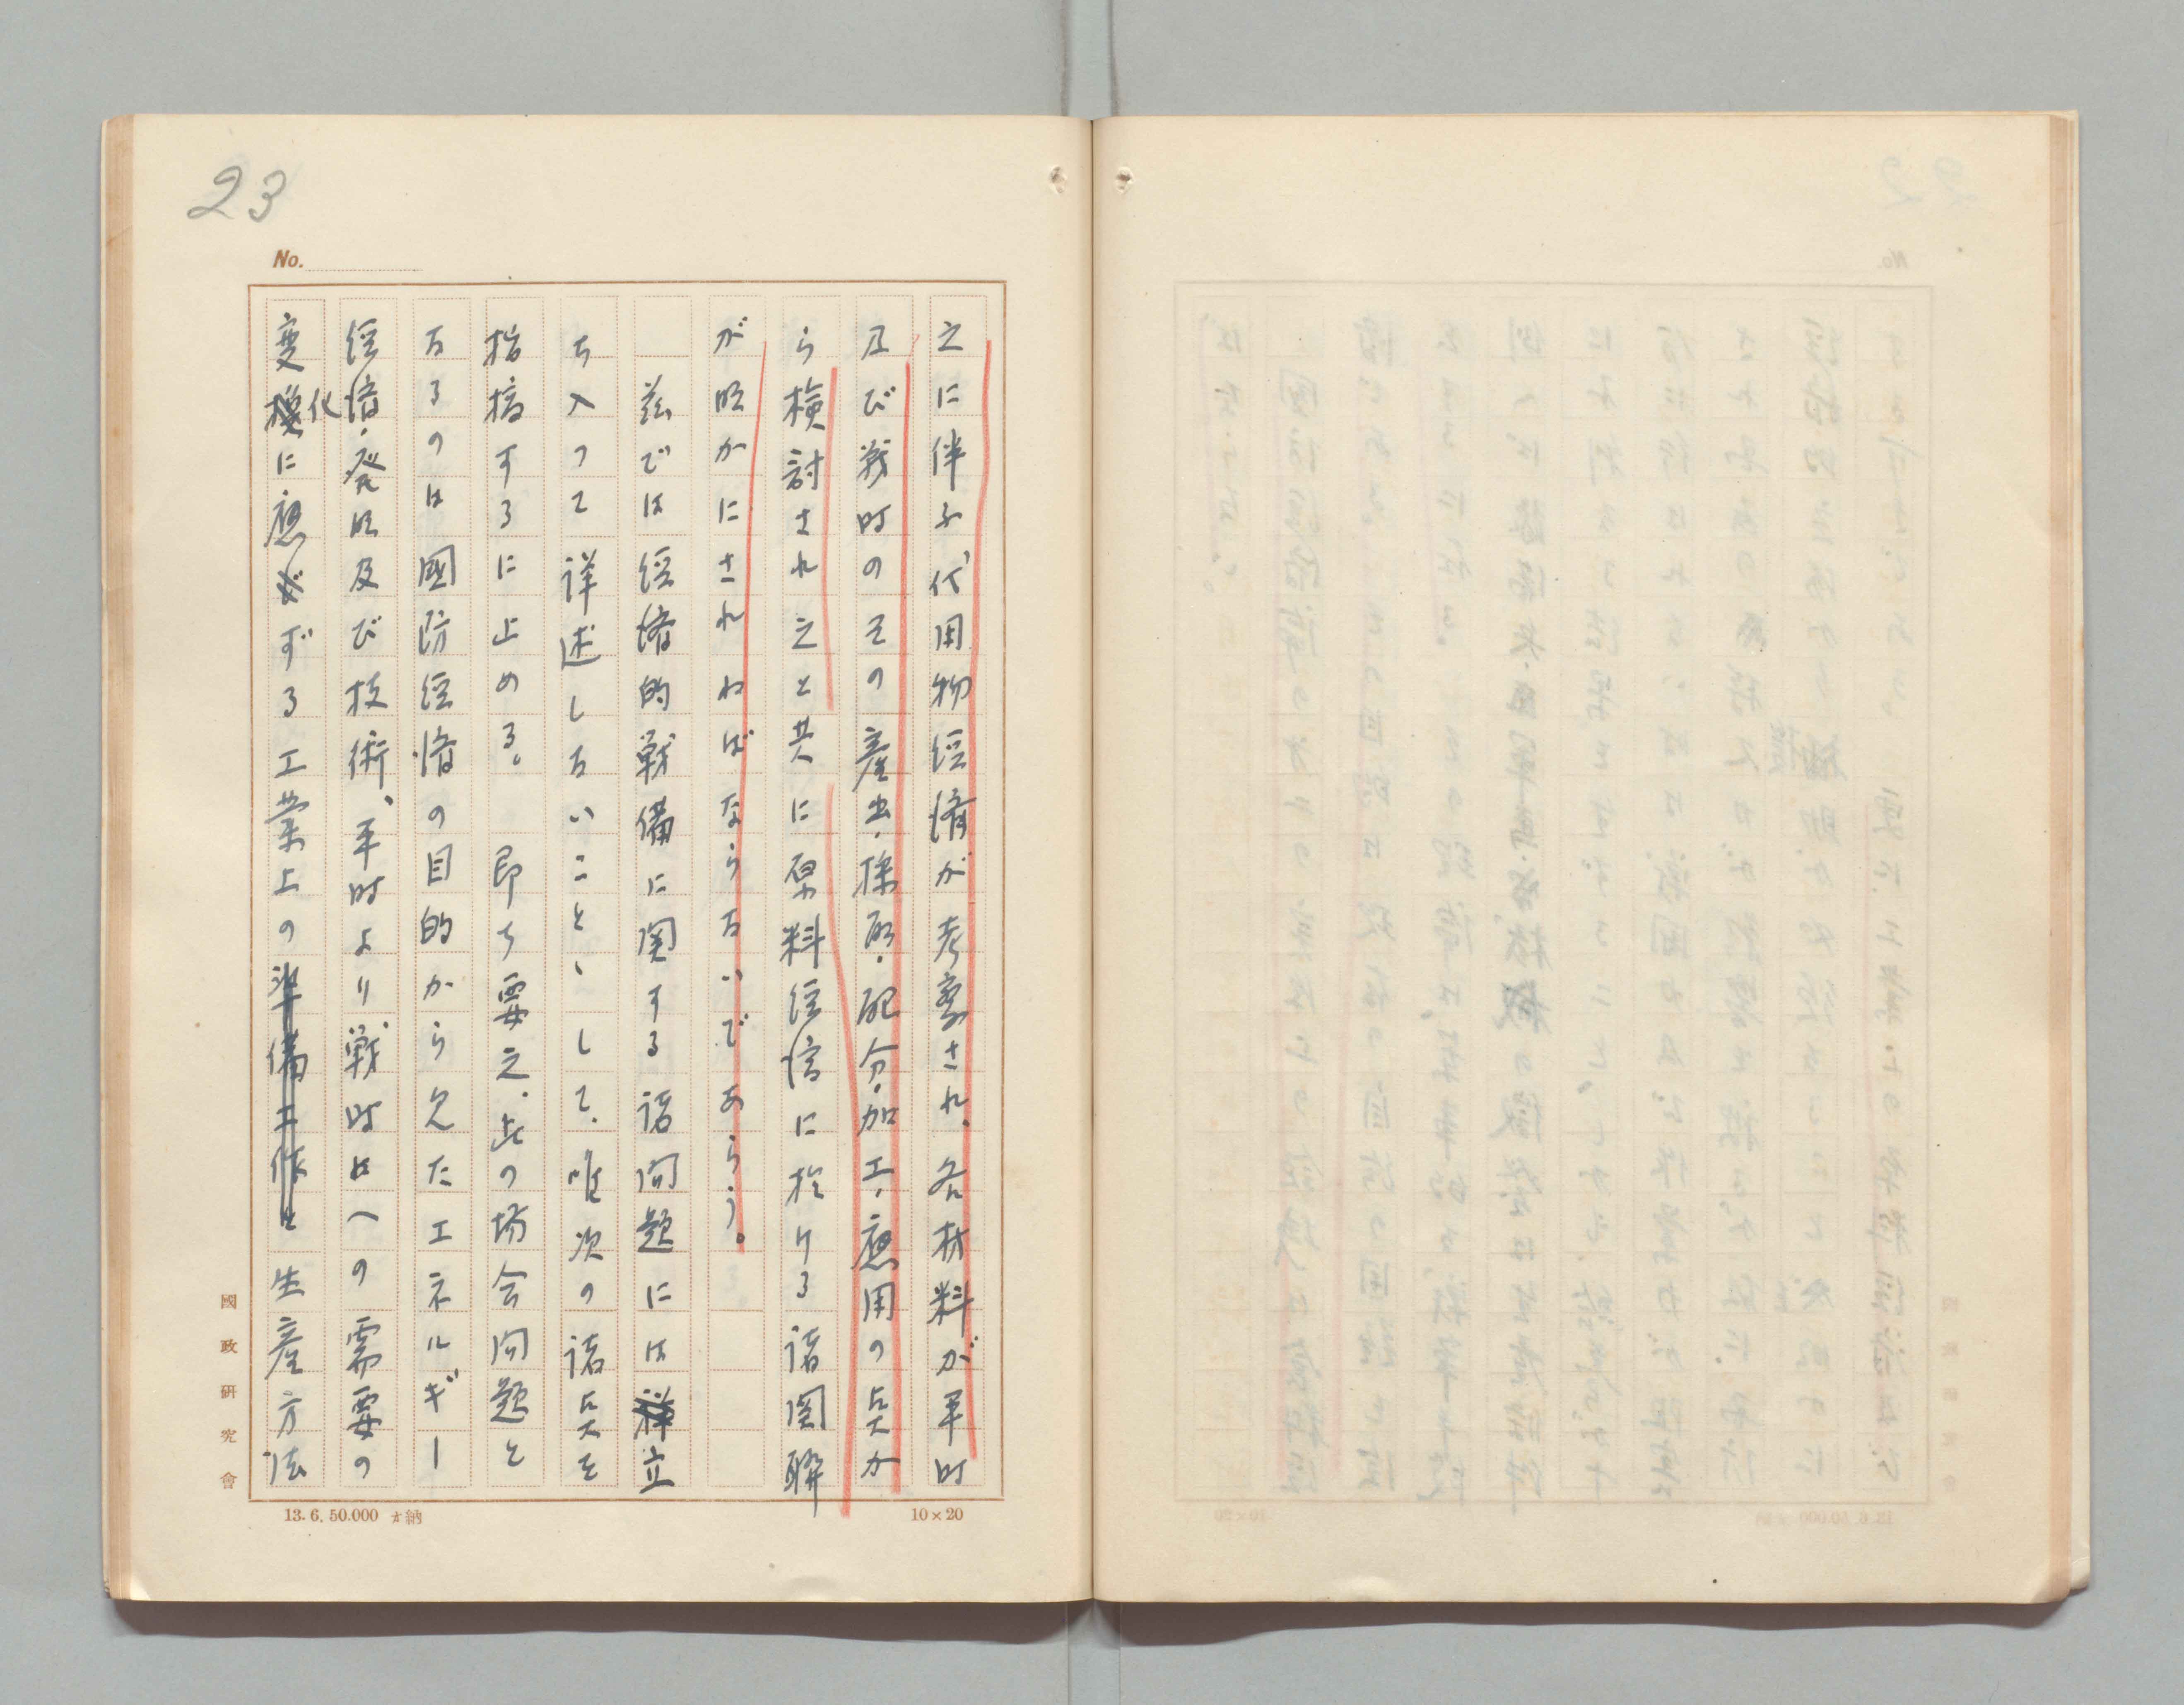 23
No.
之に伴ふ代用物経済が考察され、各材料が平時
及び戦時のその産出・採取・配分・加工・應用の点か
ら検討され之と共に原料経済に於ける諸関聯
が明かにされねばならないであらう。
茲では経済的戦備に関する諸問題には立
ち入つて詳述しないことゝして、唯次の諸点を
指摘するに止める。即ち要之、此の場合問題と
なるのは國防経済の目的から見たエネルギー
経済・発明及び技術、平時より戦時への需要の
変化に應ずる工業上の生産方法
國政研究會
13.6.50.000 納
10×20